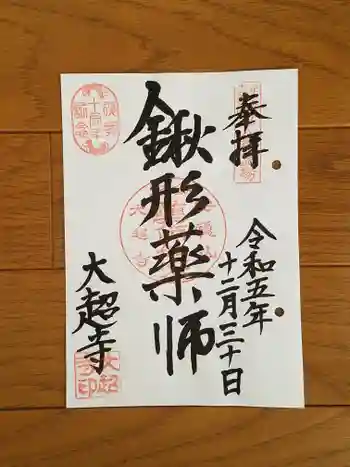 奉拝
令和五年
十二月三十日
鍬形薬師
大超寺
大超
寺印